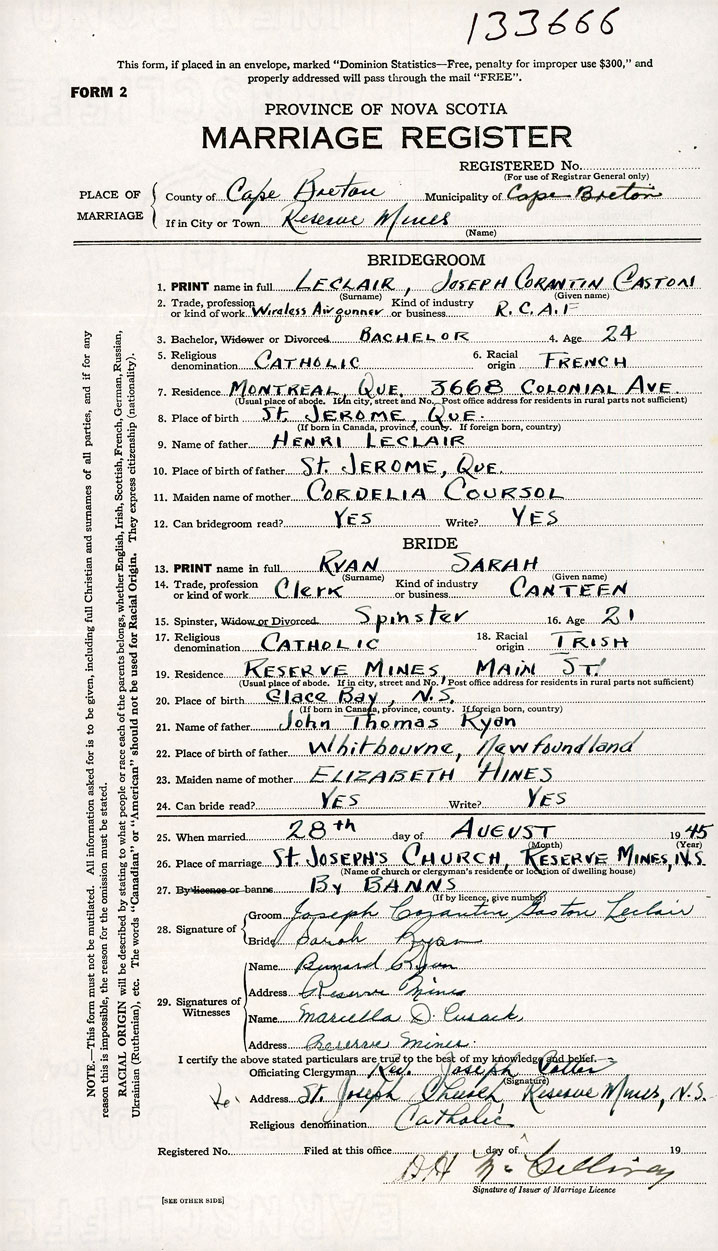 133666
This form, if placed in an envelope, marked "Dominion Statistics—Free, penalty for improper use $300," and
properly addressed will pass through the mail "FREE".
FORM 2
PROVINCE OF NOVA SCOTIA
MARRIAGE REGISTER
REGISTERED No.
(For use of Registrar General only)
PLACE OF MARRIAGE
County of Cape Breton Municipality of Cape Breton
If in City or Town Reserve Mines
(Name)
BRIDEGROOM
1. PRINT name in full LECLAIR, JOSEPH CORANTIN GASTON
(Surname) (Given name)
2. Trade, profession or kind of work Wireless Air gunner Kind of industry or business R.C.A.F
3. Bachelor, Widower or Divorced BACHELOR 4. Age 24
5. Religious denomination CATHOLIC 6. Racial origin FRENCH
7. Residence MONTREAL, QUE. 3668 COLONIAL AVE.
(Usual place of abode. If in city, street and No. Post office address for residents in rural parts not sufficient)
8. Place of birth ST. JEROME, QUE.
(If born in Canada, province, county. If foreign born, country)
9. Name of father HENRI LECLAIR
10. Place of birth of father ST. JEROME, QUE.
11. Maiden name of mother CORDELIA COURSOL
12. Can bridegroom read? YES Write? YES
BRIDE
13. PRINT name in full RYAN SARAH
(Surname) (Given name)
14. Trade, profession or kind of work Clerk Kind of industry or business CANTEEN
15. Spinster, Widow or Divorced Spinster 16. Age 21
17. Religious denomination CATHOLIC 18. Racial origin IRISH
19. Residence RESERVE MINES, MAIN ST.
(Usual place of abode. If in city, street and No. Post office address for residents in rural parts not sufficient)
20. Place of birth Glace Bay, N.S.
(If born in Canada, province, county. If foreign born, country)
21. Name of father John Thomas Ryan
22. Place of birth of father Whitbourne, Newfoundland
23. Maiden name of mother ELIZABETH HINES
24. Can bride read? YES Write? YES
25. When married 28th day of AUGUST 1945
(Month) (Year)
26. Place of marriage ST. JOSEPH'S CHURCH, RESERVE MINES, N.S.
(Name of church or clergyman's residence or location of dwelling house)
27. By licence or banns By BANNS
(If by licence, give number)
28. Signature of
Groom Joseph Corantin Gaston Leclair
Bride Sarah Ryan
29. Signatures of Witnesses
Name Bernard Ryan
Address Reserve Mines
Name Mariella D. Cusack
Address Reserve Mines.
I certify the above stated particulars are true to the best of my knowledge and belief.
Officiating Clergyman Rev. Joseph
(Signature)
Address St. Joseph Church, Reserve Mines, N.S.
Religious denomination Catholic
Registered No. Filed at this office day of 19
D H McGillivray
Signature of Issuer of Marriage Licence
[SEE OTHER SIDE]
NOTE.—This form must not be mutilated. All information asked for is to be given, including full Christian and surnames of all parties, and if for any
reason this is impossible, the reason for the omission must be stated.
RACIAL ORIGIN will be described by stating to what people or race each of the parents belongs, whether English, Irish, Scottish, French, German, Russian,
Ukrainian (Ruthenian), etc. The words "Canadian" or "American" should not be used for Racial Origin. They express citizenship (nationality).